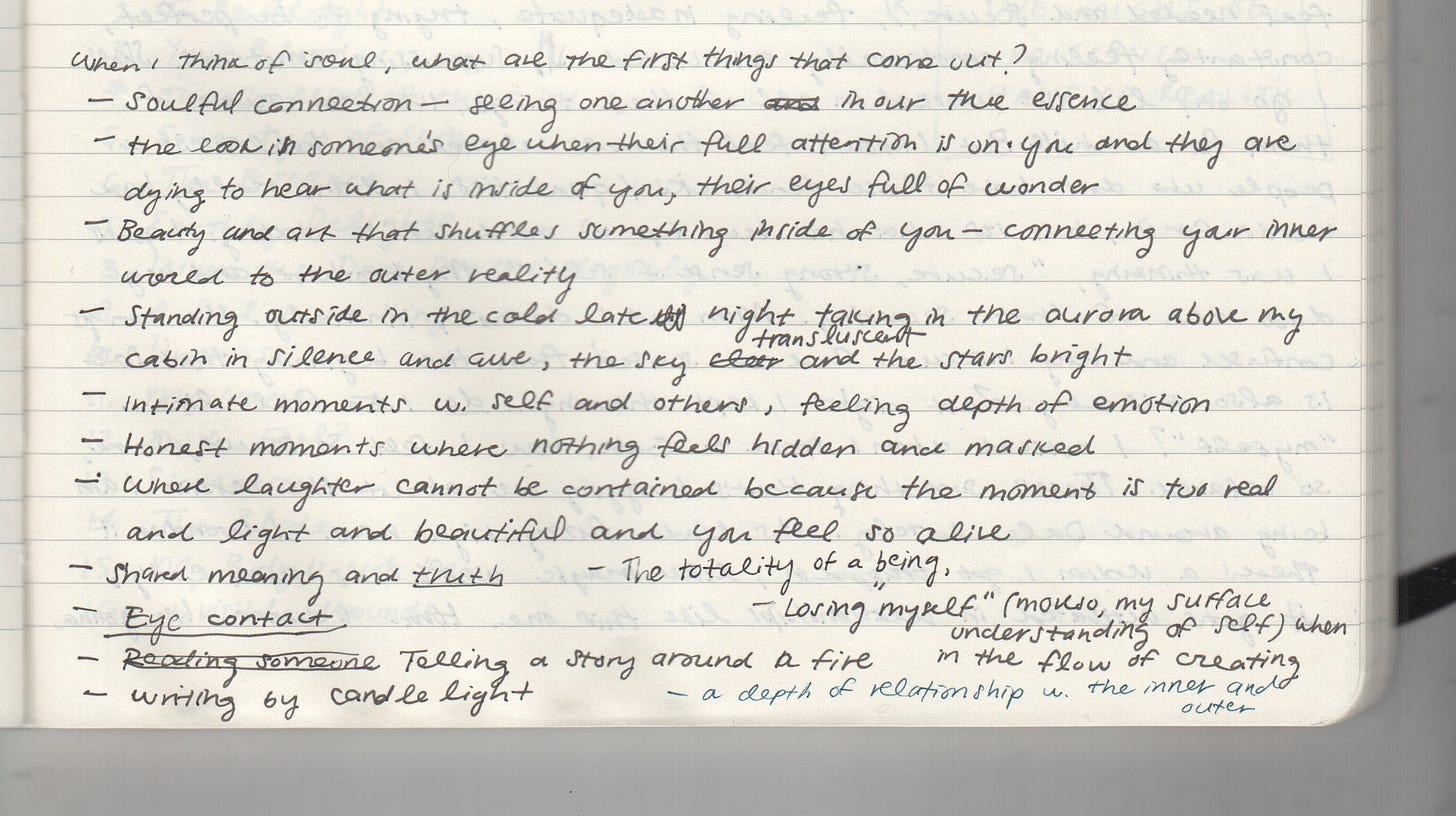 When I think of soul, what are the first things that come out?
– Soulful connection – seeing one another and in our true essence
– the look in someone's eye when their full attention is on you and they are
dying to hear what is inside of you, their eyes full of wonder
– Beauty and art that shuffles something inside of you – connecting your inner
world to the outer reality
– Standing outside in the cold late night taking in the aurora above my
transluscent
cabin in silence and awe, the sky clear and the stars bright
– Intimate moments w. self and others, feeling depth of emotion
– Honest moments where nothing feels hidden and masked
– Where laughter cannot be contained because the moment is too real
and light and beautiful and you feel so alive
– Shared meaning and truth – The totality of a being.
– Eye contact.
– Losing "myself" (moreso, my surface
understanding of self) when
in the flow of creating
– Reading someone Telling a story around a fire
– writing by candle light
– a depth of relationship w. the inner and
outer